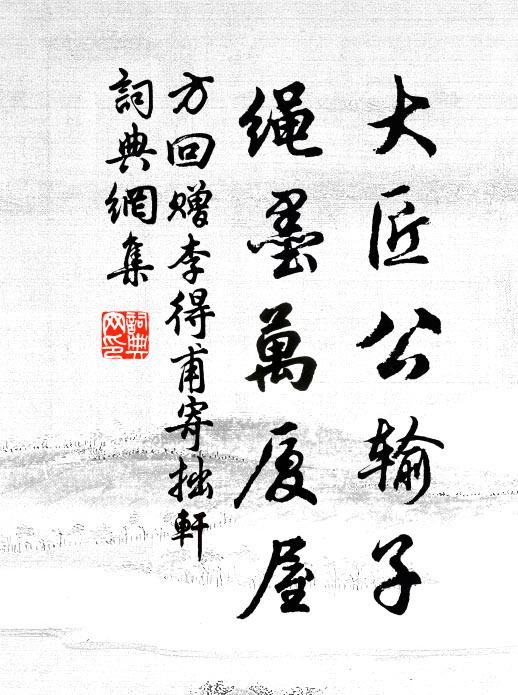 大匠公输子
绳墨萬厦屋
方回赠李得甫寄拙軒
詞典網集
詞典网印